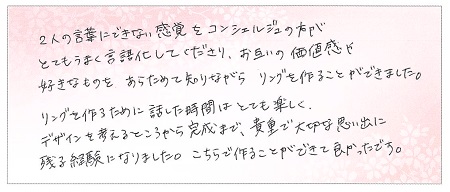 2人の言葉にできない感覚をコンシェルジュの方が
とてもうまく言語化してくださり、お互いの価値感や
好きなものを あらためて知りながら リングを作ることができました。
リングを作るために話した時間はとても楽しく、
デザインを考えるところから完成まで、貴重で大切な思い出に
残る経験になりました。こちらで作ることができて良かったです。